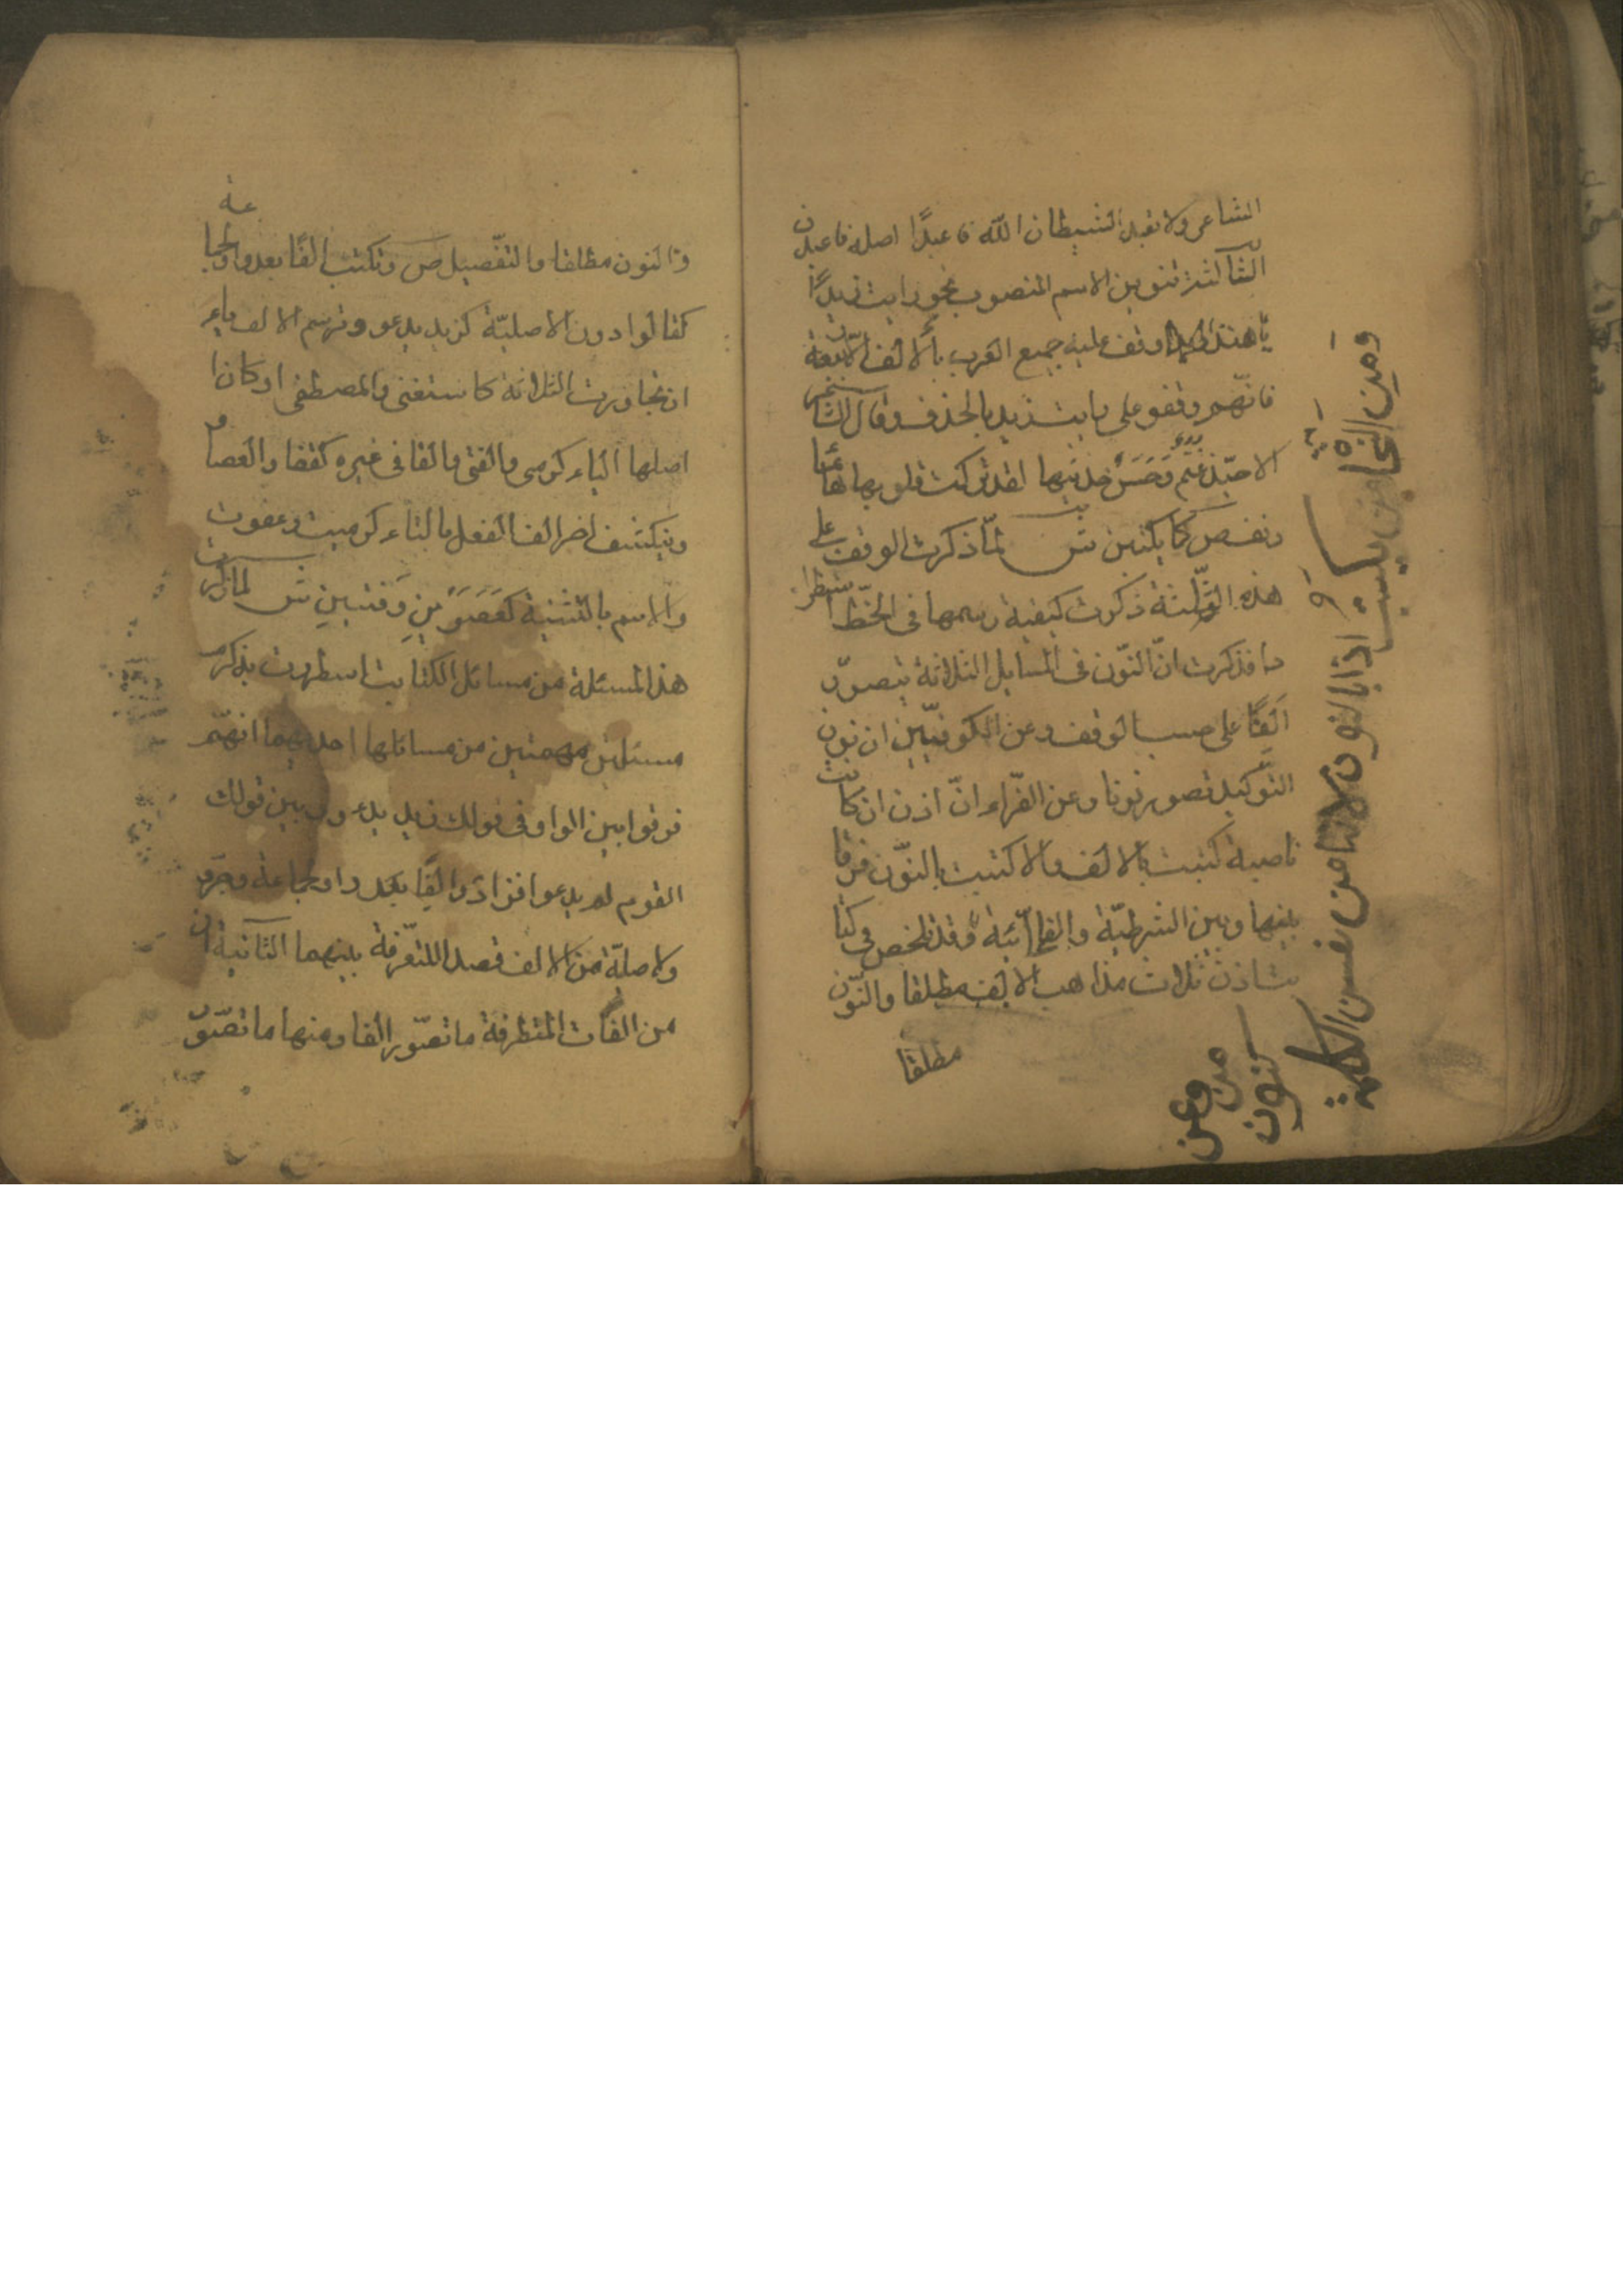 الشاعر ولا تعبد الشيطان الله فاعبدًا اصله فاعبدن
الثالثة تنوين الاسم المنصوب نحو رايت زيدًا
وقف عليه جميع العرب بالالف الا ربيعة
فانهم وقفو على رايت زيد بالحذف وقال الشاعر
الا حبّذا غنم وحسن حديثها لقد تركت قلوبها هائما
ونفص كما يكتبن ش لمّا ذكرت الوقف على
هذه الثلثة ذكرت كيفية رسمها في الخطّ استطرا
دا فذكرت انّ النّون في المسايل الثلاثة تتصوّر
الفًا على حسب الوقف وعن الكوفيّين ان نون
التوكيد تصور نونا وعن الفرّاء انّ اذن ان كانت
ناصبة كتبت بالالف والا كتبت بالنّون فرقا
بينها وبين الشرطيّة والفجائية وقد تلخص في كتا
بت اذن ثلاث مذاهب الالف مطلقا والنّون
مطلقا
ومن
اذا بالنون لانها من نفس الكلمة
كنون
من وعن
والنون مطلقا والتفصيل ص وتكتب الفًا بعد واو الجماعة
كقالوا دون الاصليّة كزيد يدعو وترسم الالف ياء
ان تجاوزت الثلاثة كاستغنى والمصطفى او كان
اصلها الياء كرمى والفتى والفا في غيره كقفا والعصا و
وينكشف امر الف الفعل بالتاء كرميت وعفوت
والاسم بالتثنية كعَصَوَيْنِ وفتيين ش لما ذكرت
هذ المسئلة من مسائل الكتابت استطردت بذكر
مسئلتين مهمتين من مسائلها احديهما انهّم
فرقوا بين الواو في قولك زيد يدعو وبين قولك
القوم لم يدعوا فزادوا الفًا بعد واو الجماعة وجرّدوا
الاصليّة من الالف قصدا للتفرّقة بينهما الثانية ان
من الفات المتطرفة ما تصّور الفا ومنها ما تصّور